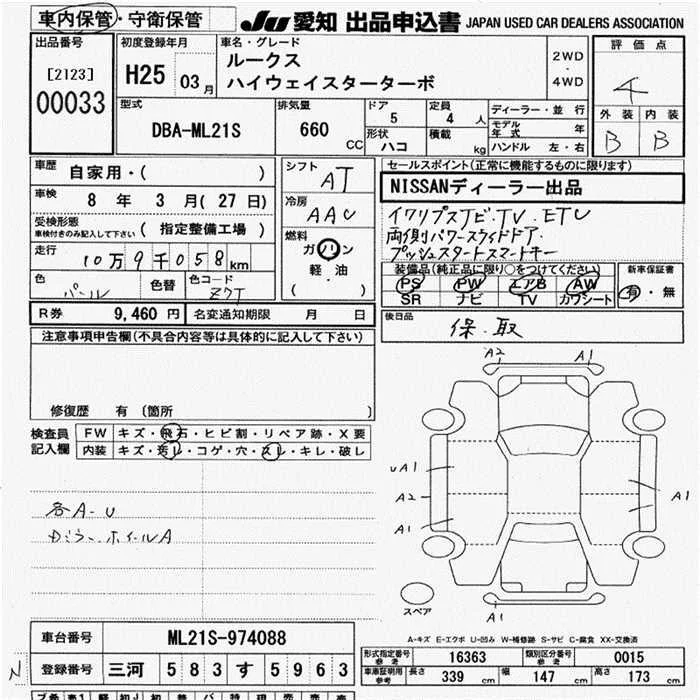 車内保管・守衛保管
JU 愛知 出品申込書 JAPAN USED CAR DEALERS ASSOCIATION
出品番号
[2123]
00033
初度登録年月
H25 03月
車名・グレード
ルークス
ハイウェイスターターボ
2WD
・
4WD
評価点
4
外装 内装
B B
型式
DBA-ML21S
排気量
660 CC
ドア
5
定員
4人
形状
ハコ
積載
kg
ディーラー・並行
モデル年式 年
ハンドル 左・右
車歴
自家用・( )
車検
8年 3月(27日)
受検形態
車検付きのみ記入して下さい
(指定整備工場)
走行
10万9千058km
色
パール
色替
色コード
Z7T
シフト
AT
冷房
AAC
燃料
ガソリン
軽・油
( )
セールスポイント(正常に機能するものに限ります)
NISSANディーラー出品
TV. ETC
両側パワースライドドア.
プッシュスタートスマートキー
装備品(純正品に限り○をつけてください)
PS PW エアB AW
SR ナビ TV カワシート
新車保証書
有・無
R券 9,460円
名変通知期限 月 日
後日品
保.取
注意事項申告欄(不具合内容等は具体的に記入して下さい)
修復歴 有〔箇所 〕
検査員記入欄
FW キズ・飛石・ヒビ割・リペア跡・X要
内装 キズ・汚レ・コゲ・穴・スレ・キレ・破レ
各A-U
カラー、ホイールA
A2 A1
uA1
A2
A1
A1
A1
スペア
A-キズ E-エクボ U-凹み W-補修跡 S-サビ C-腐食 XX-交換済
車台番号 ML21S-974088
登録番号 三河 583 す 5963
N
形式指定番号 参考 16363
類別区分番号 参考 0015
車庫証明用 参考 長さ 339cm 幅 147cm 高さ 173cm